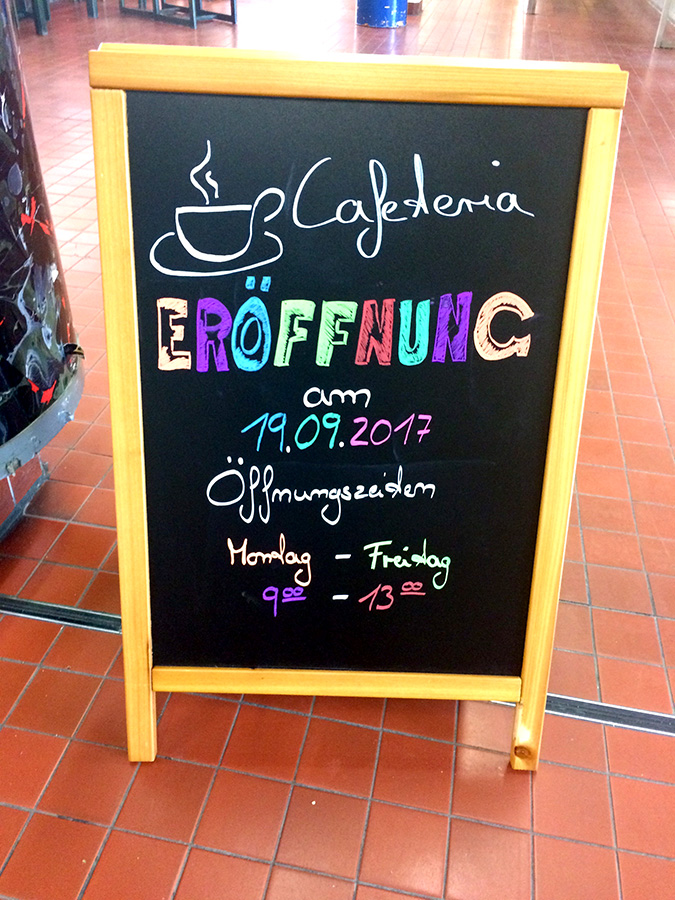 Cafeteria
ERÖFFNUNG
am
19.09.2017
Öffnungszeiten
Montag - Freitag
9⁰⁰ - 13⁰⁰